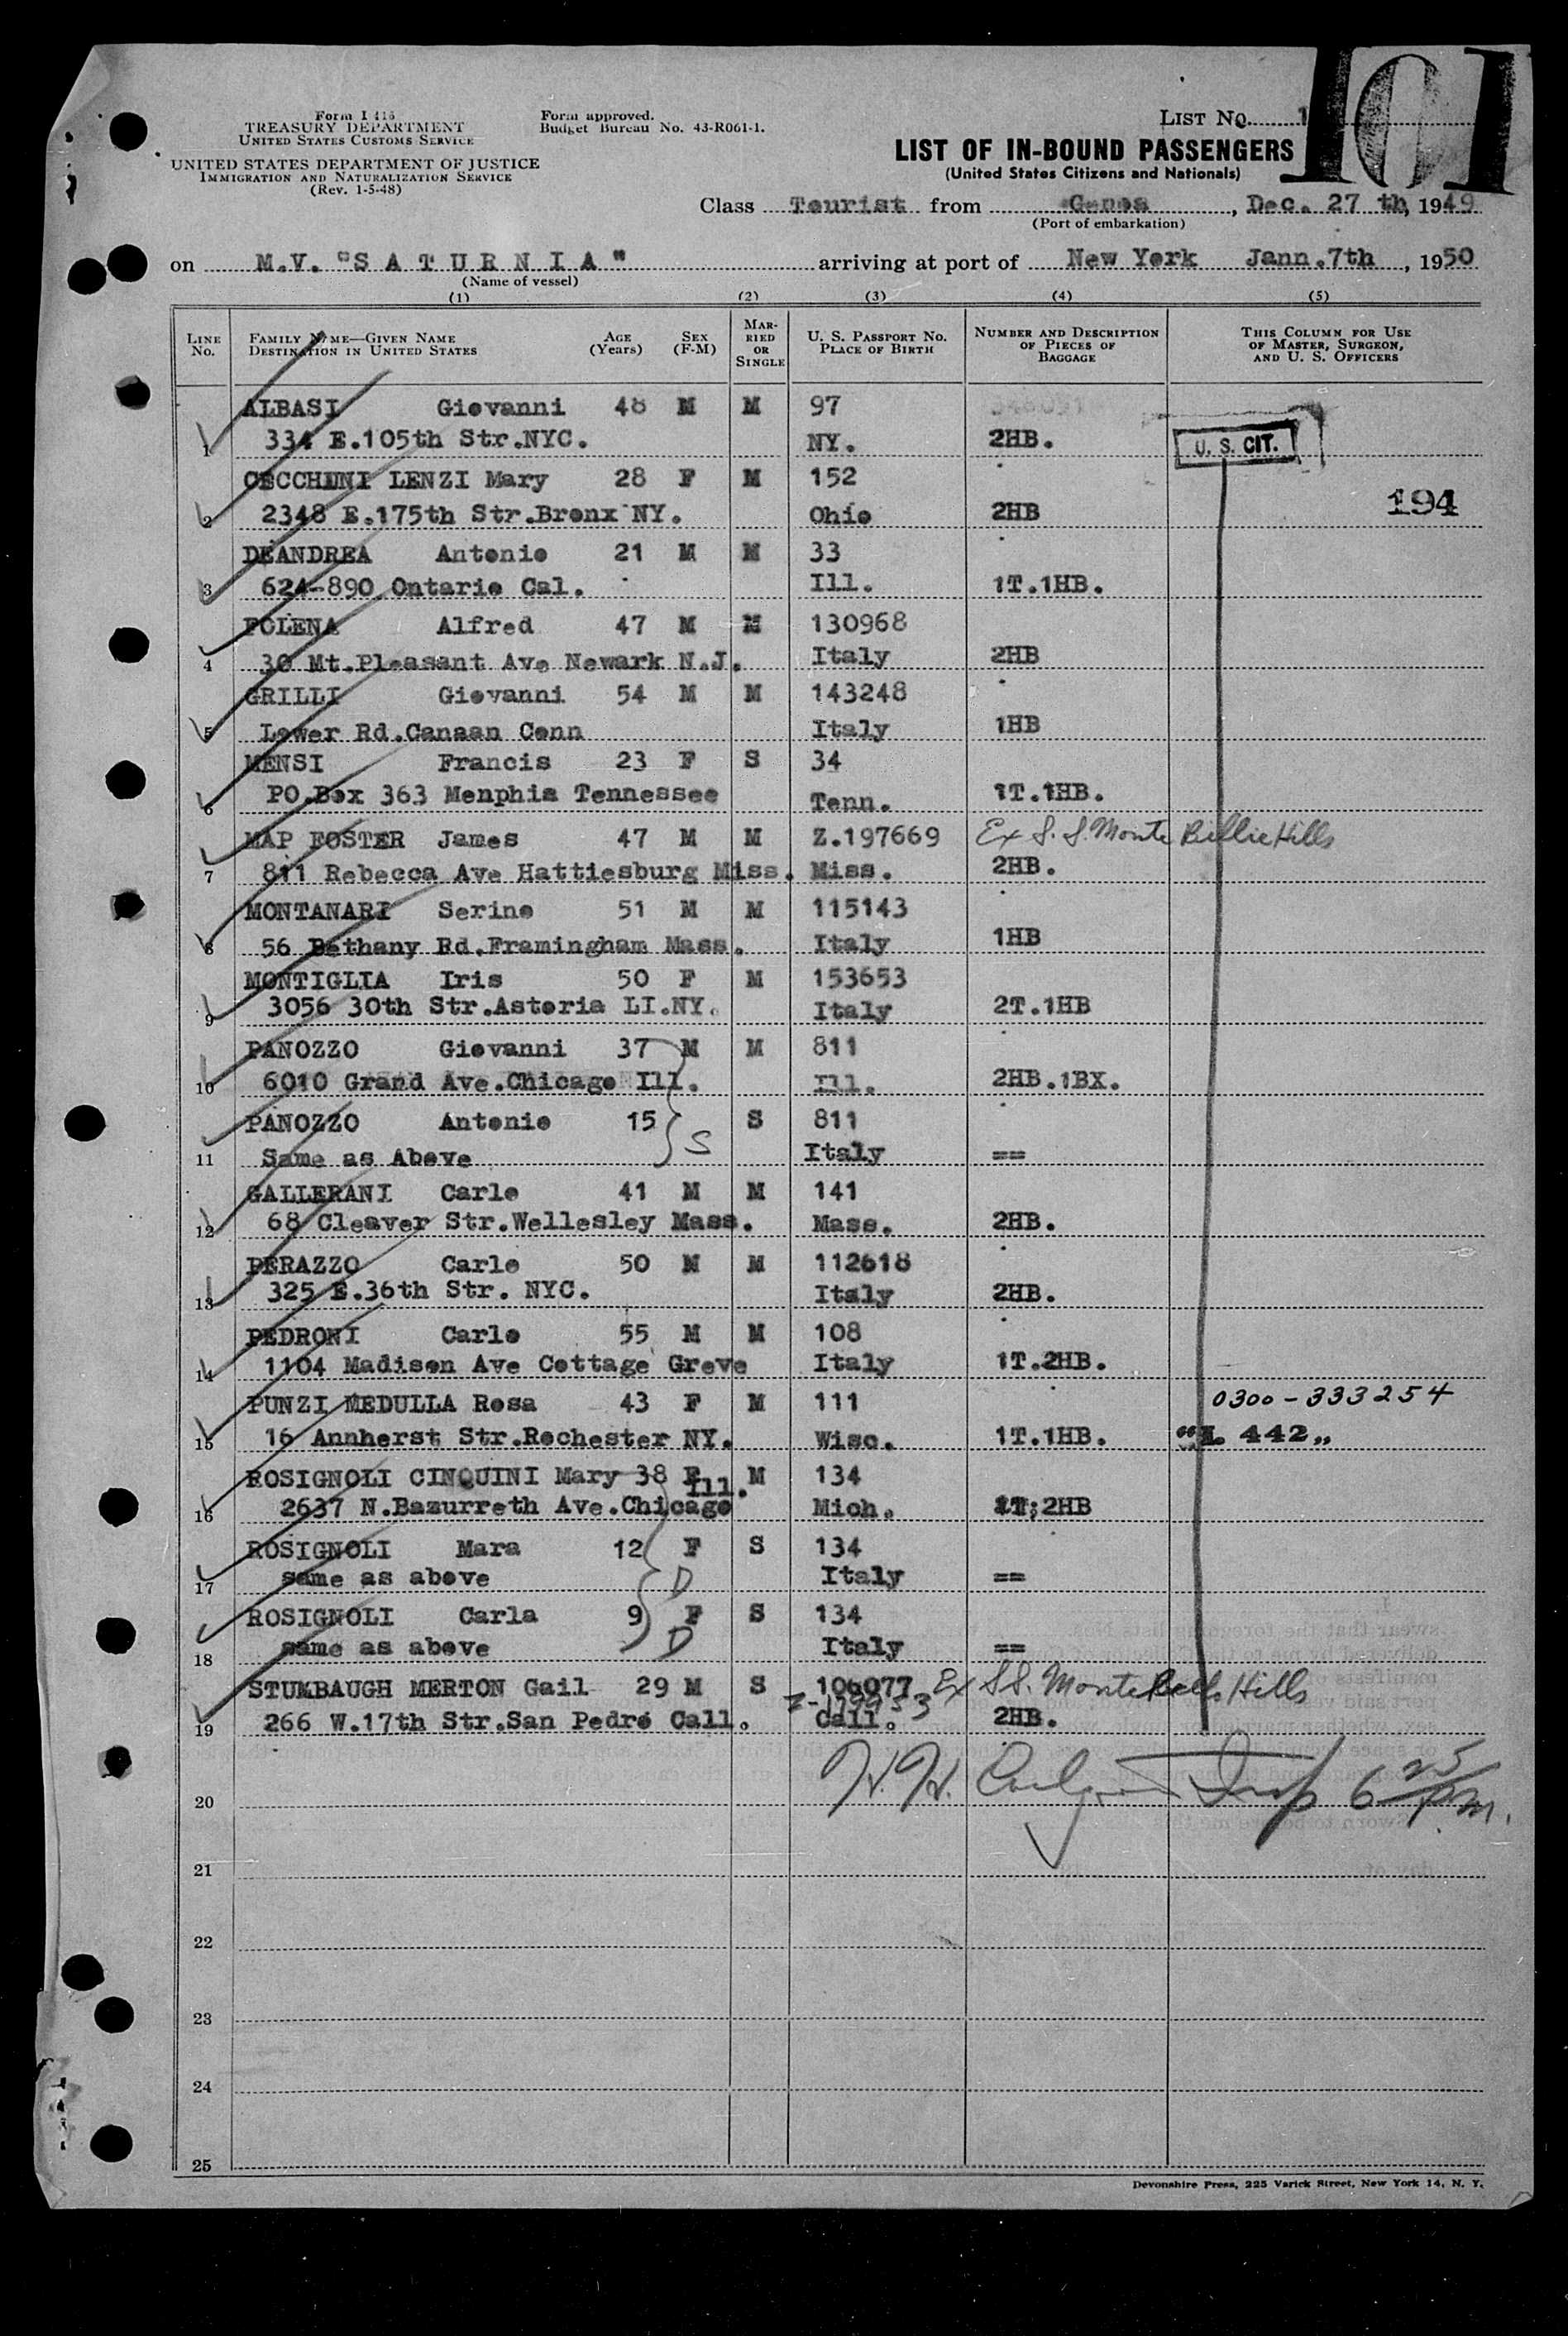 101
Form I 416
TREASURY DEPARTMENT
UNITED STATES CUSTOMS SERVICE
UNITED STATES DEPARTMENT OF JUSTICE
IMMIGRATION AND NATURALIZATION SERVICE
(Rev. 1-5-48)
Form approved.
Budget Bureau No. 43-R061-1.
LIST NO. 1
LIST OF IN-BOUND PASSENGERS
(United States Citizens and Nationals)
Class Tourist from Genoa, Dec. 27 th, 1949
(Port of embarkation)
on M.V. "S A T U R N I A" arriving at port of New York Jann.7th, 1950
(Name of vessel)
(1) (2) (3) (4) (5)
LINE No. FAMILY NAME—GIVEN NAME DESTINATION IN UNITED STATES AGE (Years) SEX (F-M) MARRIED OR SINGLE U. S. PASSPORT NO. PLACE OF BIRTH NUMBER AND DESCRIPTION OF PIECES OF BAGGAGE THIS COLUMN FOR USE OF MASTER, SURGEON, AND U. S. OFFICERS
ALBASI Giovanni 48 M M 97
1 334 E.105th Str.NYC. NY. 2HB. U. S. CIT.
CECCHINI LENZI Mary 28 F M 152
194
2 2348 E.175th Str.Bronx NY. Ohio 2HB
DEANDREA Antonio 21 M M 33
3 624-890 Ontario Cal. Ill. 1T.1HB.
FOLENA Alfred 47 M M 130968
4 30 Mt.Pleasant Ave Newark N.J. Italy 2HB
GRILLI Giovanni 54 M M 143248
5 Lower Rd.Canaan Conn Italy 1HB
MENSI Francis 23 F S 34
6 PO.Box 363 Menphis Tennessee Tenn. 1T.1HB.
MAP FOSTER James 47 M M Z.197669 Ex S.S. Monte Billie Hills
7 811 Rebecca Ave Hattiesburg Miss. Miss. 2HB.
MONTANARI Serino 51 M M 115143
8 56 Bethany Rd.Framingham Mass. Italy 1HB
MONTIGLIA Iris 50 F M 153653
9 3056 30th Str.Astoria LI.NY. Italy 2T.1HB
PANOZZO Giovanni 37 M M 811
10 6010 Grand Ave.Chicago Ill. Ill. 2HB.1BX.
PANOZZO Antonio 15 S S 811
11 Same as Above Italy ==
GALLERANI Carlo 41 M M 141
12 68 Cleaver Str.Wellesley Mass. Mass. 2HB.
PERAZZO Carlo 50 M M 112618
13 325 E.36th Str. NYC. Italy 2HB.
PEDRONI Carlo 55 M M 108
14 1104 Madison Ave Cottage Grove Italy 1T.2HB.
PUNZI MEDULLA Rosa 43 F M 111 0300-333254
15 16 Annherst Str.Rochester NY. Wisc. 1T.1HB. "L. 442"
ROSIGNOLI CINQUINI Mary 38 F M 134
Ill.
16 2637 N.Bazurreth Ave.Chicago Mich. 1T;2HB
ROSIGNOLI Mara 12 F S 134
17 same as above D Italy ==
ROSIGNOLI Carla 9 F S 134
18 same as above D Italy ==
STUMBAUGH MERTON Gail 29 M S 106077 Ex SS. Monte Hills
19 266 W.17th Str.San Pedro Call. Call. 2HB.
20 Insp 6 25 P.M.
21
22
23
24
25
Devonshire Press, 225 Varick Street, New York 14, N. Y.